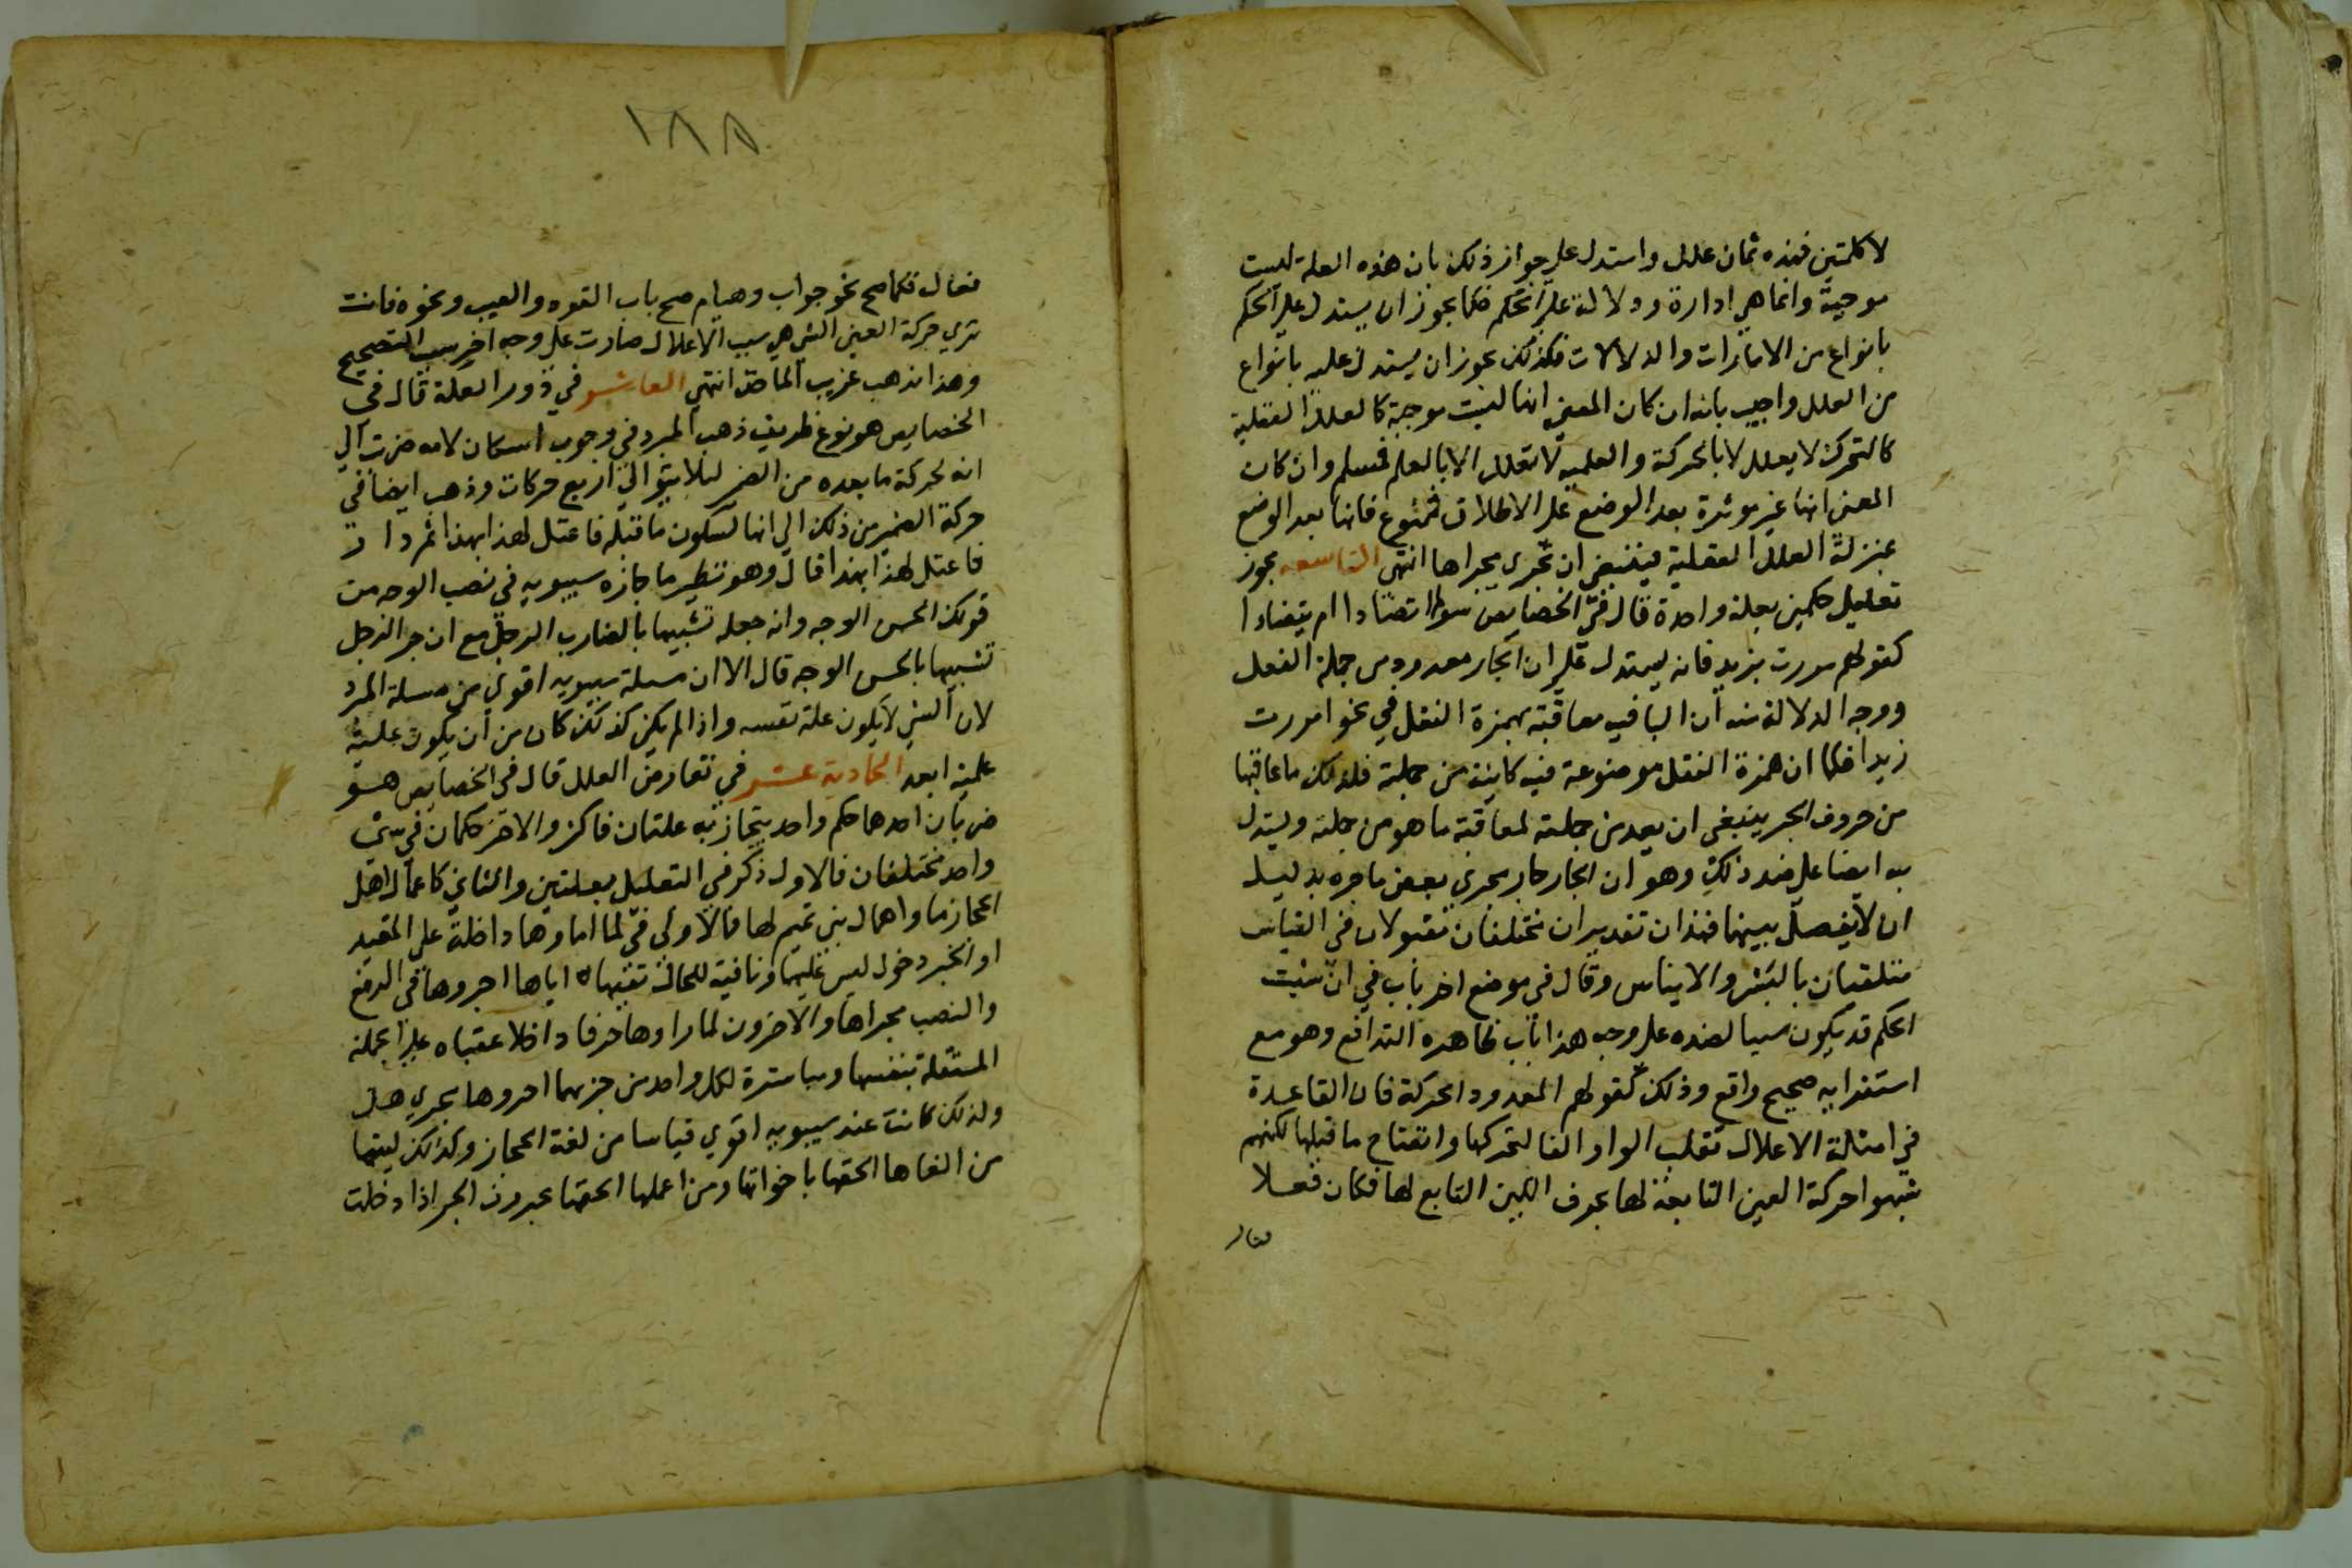 لا كلمتين فهذه ثمان علل واستدل علي جواز ذلك بان هذه العلة ليست
موجبة وانما هي ادارة ودلالة علي الحكم فكما يجوز ان يستدل علي الحكم
بانواع من الامارات والدلالات فكذلك يجوز ان يستدل عليه بانواع
من العلل واجيب بانه ان كان المعني انها ليست موجبة كالعلل العقلية
كالتحرك لا يعلل الا بالحركة والعلمية لا تعلل الا بالعلم فمسلم وان كان
المعني انها غير موثرة بعد الوضع علي الاطلاق فممنوع فانها بعد الوضع
بمنزلة العلل العقلية فينبغي ان تجري مجراها انتهي التاسعه يجوز
تعليل حكمين بعلة واحدة قال في الخصايص سوا تضادا ام يتضادا
كقولهم مررت بزيد فانه يستدل علي ان الجار معدود من جملة الفعل
ووجه الدلالة منه ان البا فيه معاقبة بهمزة النقل في نحو امررت
زيدا فكما ان همزة النقل موضوعة فيه كاينة من جملته فلذلك ما عاقبها
من حروف الجر ينبغي ان يعد من جملته لمعاقبة ما هو من جملته ويستدل
به ايضا علي ضد ذلك وهو ان الجار جار مجري بعض ما جره بدليل
ان لا يفصل بينهما فهذان تقديران مختلفان مقبولان في القياس
متلقيان بالبشر والايناس وقال في موضع اخر باب في ان سبب
الحكم قد يكون سببا لضده علي وجه هذا باب ظاهره التدافع وهو مع
استغرابه صحيح واقع وذلك كقولهم القود والحركة فان القاعدة
في امثلة الاعلال تقلب الواو الفا لتحركها وانفتاح ما قبلها لكنهم
شبهوا حركة العين التابعة لها بحرف اللين التابع لها فكان فعلا
فعال
١٨٨
فعال فكما صح نحو جواب وهيام صح باب القود والعيب ونحوه فانت
تري حركة العين التي هي سبب الاعلال صارت علي وجه اخر سبب التصحيح
وهذا مذهب غريب الماخذ انتهي العاشر في دور العلة قال في
الخصايص هو نوع ظريف ذهب المبرد في وجوب اسكان لام ضربت الي
انه لحركة ما بعده من الضمير ليلا يتوالي اربع حركات وذهب ايضا في
حركة الضمير من ذلك الي انها لسكون ما قبله فاعتل لهذا بهذا ثم دار
فاعتل لهذا بهذا قال وهو نظير ما جازه سيبويه في نصب الوجه من
قولك الحسن الوجه وانه جعله تشبيها بالضارب الرجل مع ان جر الرجل
تشبيها بالحسن الوجه قال الا ان مسلة سيبويه اقوي من مسلة المبرد
لان الشي لا يكون علة نفسه واذا لم يكن كذلك كان من ان يكون علة
علته ابعد الحادية عشر في تعارض العلل قال في الخصايص هو
ضربان احدهما حكم واحد يتجاذبه علتان فاكثر والاخر حكمان في شي
واحد مختلفان فالاول ذكر في التعليل بعلتين والثاني كاعمال اهل
الحجاز ما واهمال بني تميم لها فالاولي في لما راوها داخلة علي المقيد
او الخبر دخول ليس عليها ونافية للحال تشبهاه اياها اجروها في الرفع
والنصب مجراها والاخرون لما راوها حرفا داخلا عقباه علي الجملة
المستقلة بنفسها ومباشرة لكل واحد من جزيها اجروها مجري هل
ولذلك كانت عند سيبويه اقوي قياسا من لغة الحجاز وكذلك ليتما
من الغاها الحقها باخواتها ومن اعملها الحقها بحروف الجر اذا دخلت